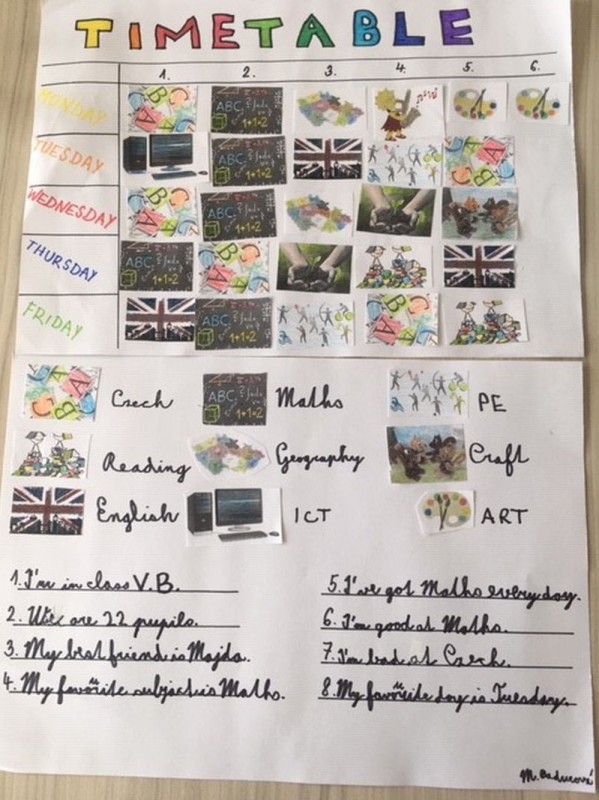 TIMETABLE
1. 2. 3. 4. 5. 6.
MONDAY
TUESDAY
WEDNESDAY
THURSDAY
FRIDAY
Czech Maths PE
Reading Geography Craft
English ICT ART
1. I'm in class V.B.
2. We are 22 pupils.
3. My best friend is Majda.
4. My favourite subject is Maths.
5. I've got Maths every day.
6. I'm good at Maths.
7. I'm bad at Czech.
8. My favourite day is Tuesday.
M.